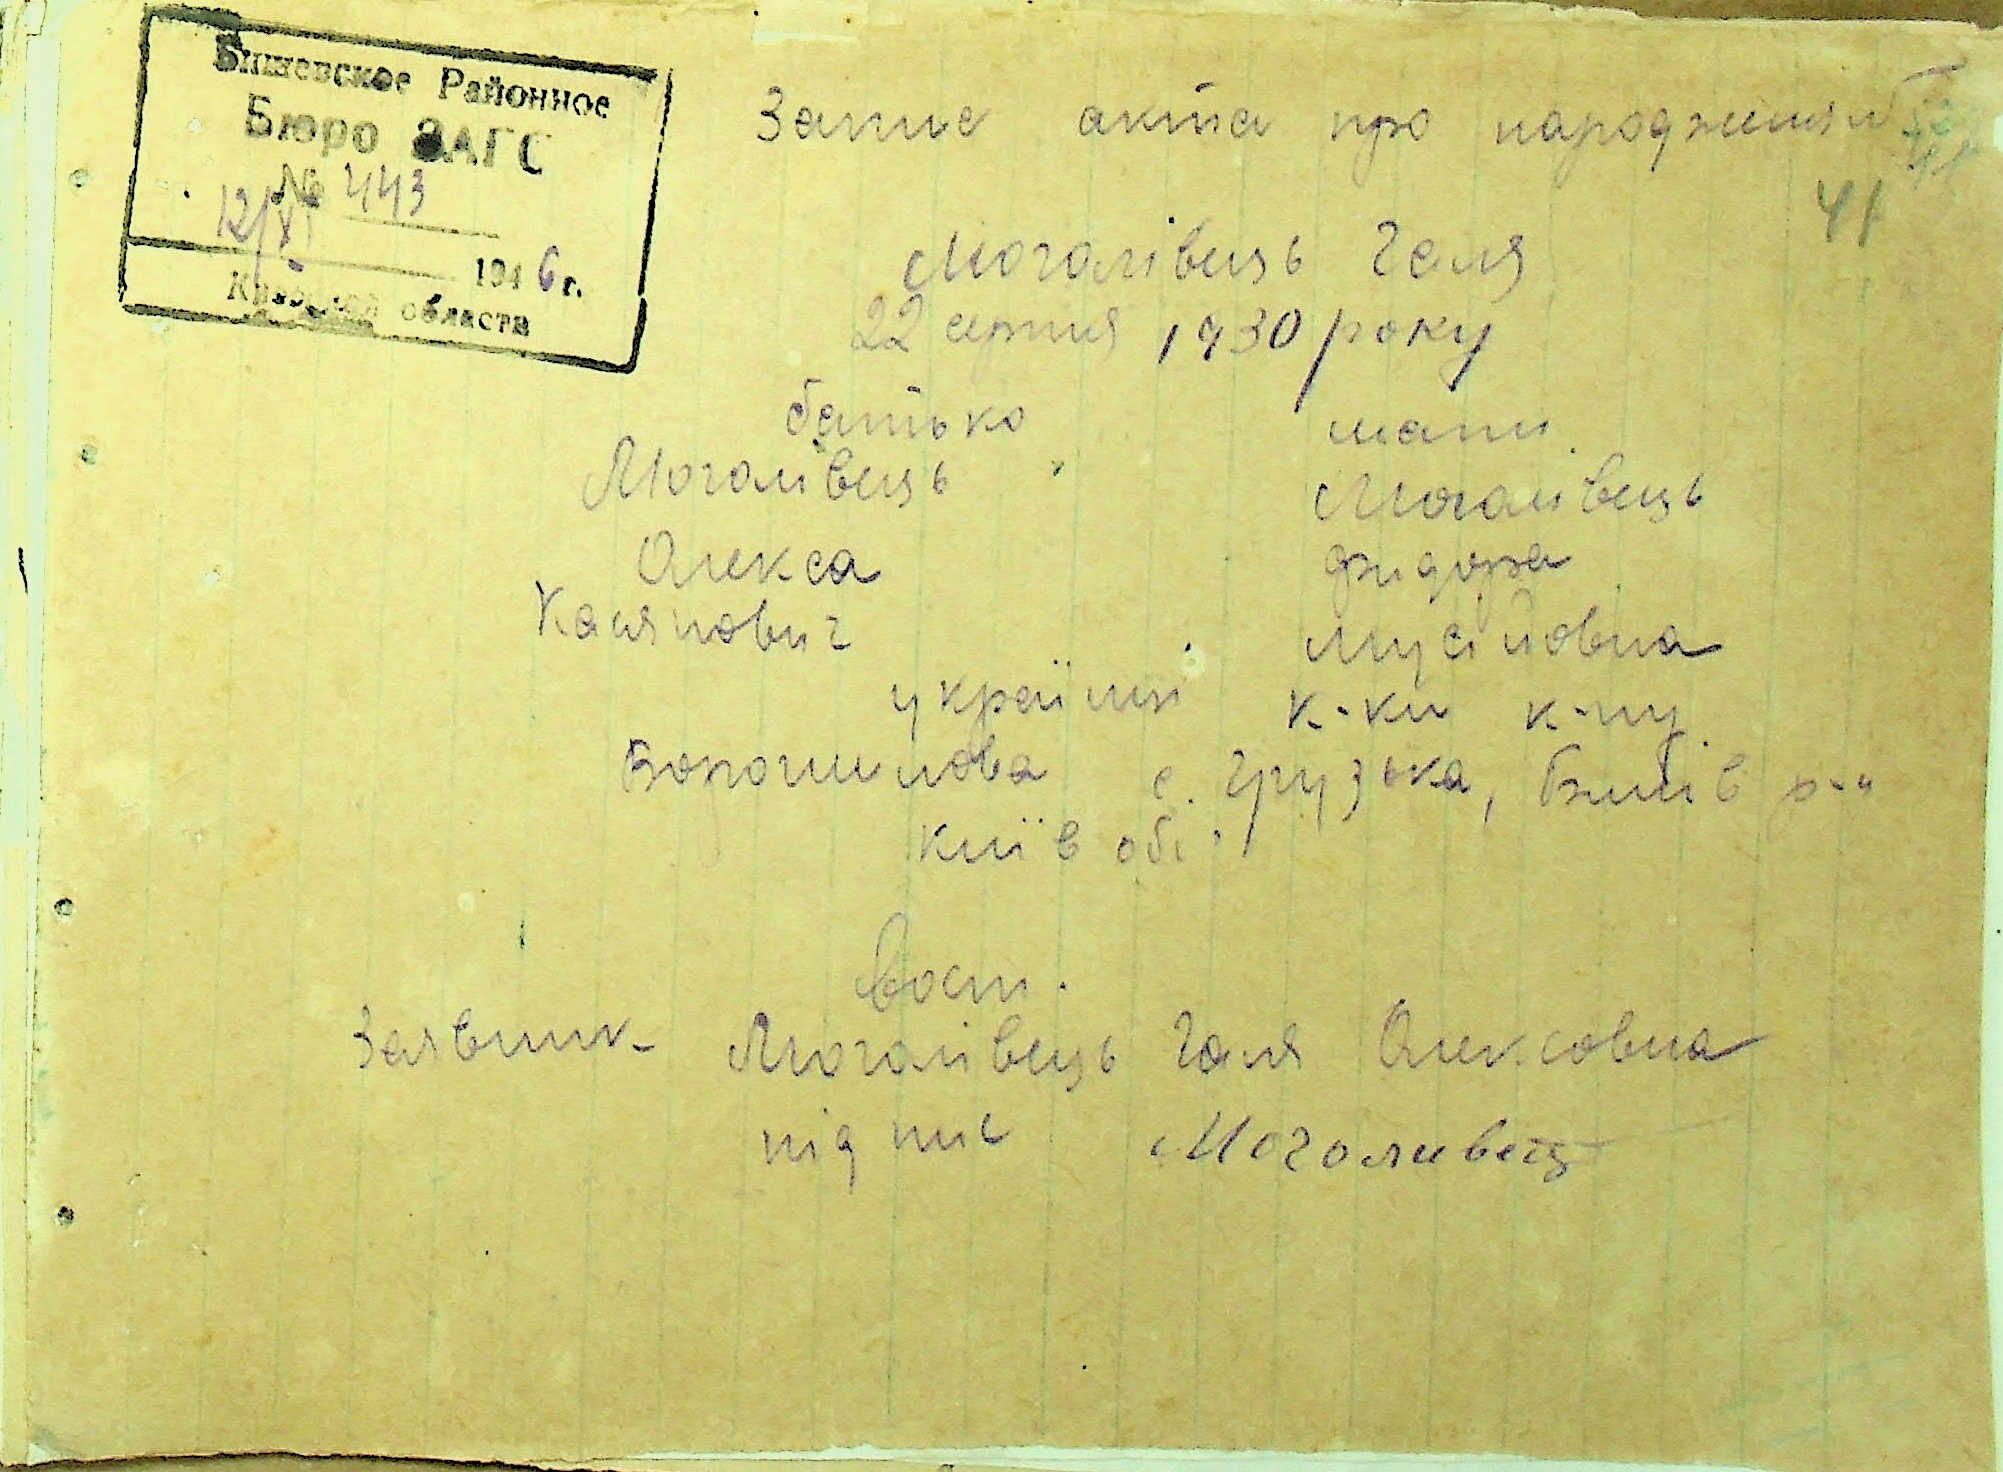 Бишевское Районное
Бюро ЗАГС
№ 443
12/XI 1946 г.
Киевской области
Запис акта про народження
41
Моголівець Галя
22 серпня 1930 року
батько мати
Моголівець Моголівець
Олекса Фидора
Касянович Мусійовна
українці к-ки к-пу
Ворошилова с. Грузька, Бишів р-н
Київ обл.
Вост.
Заявник - Моголівець Галя Олексовна
підпис Моголивец